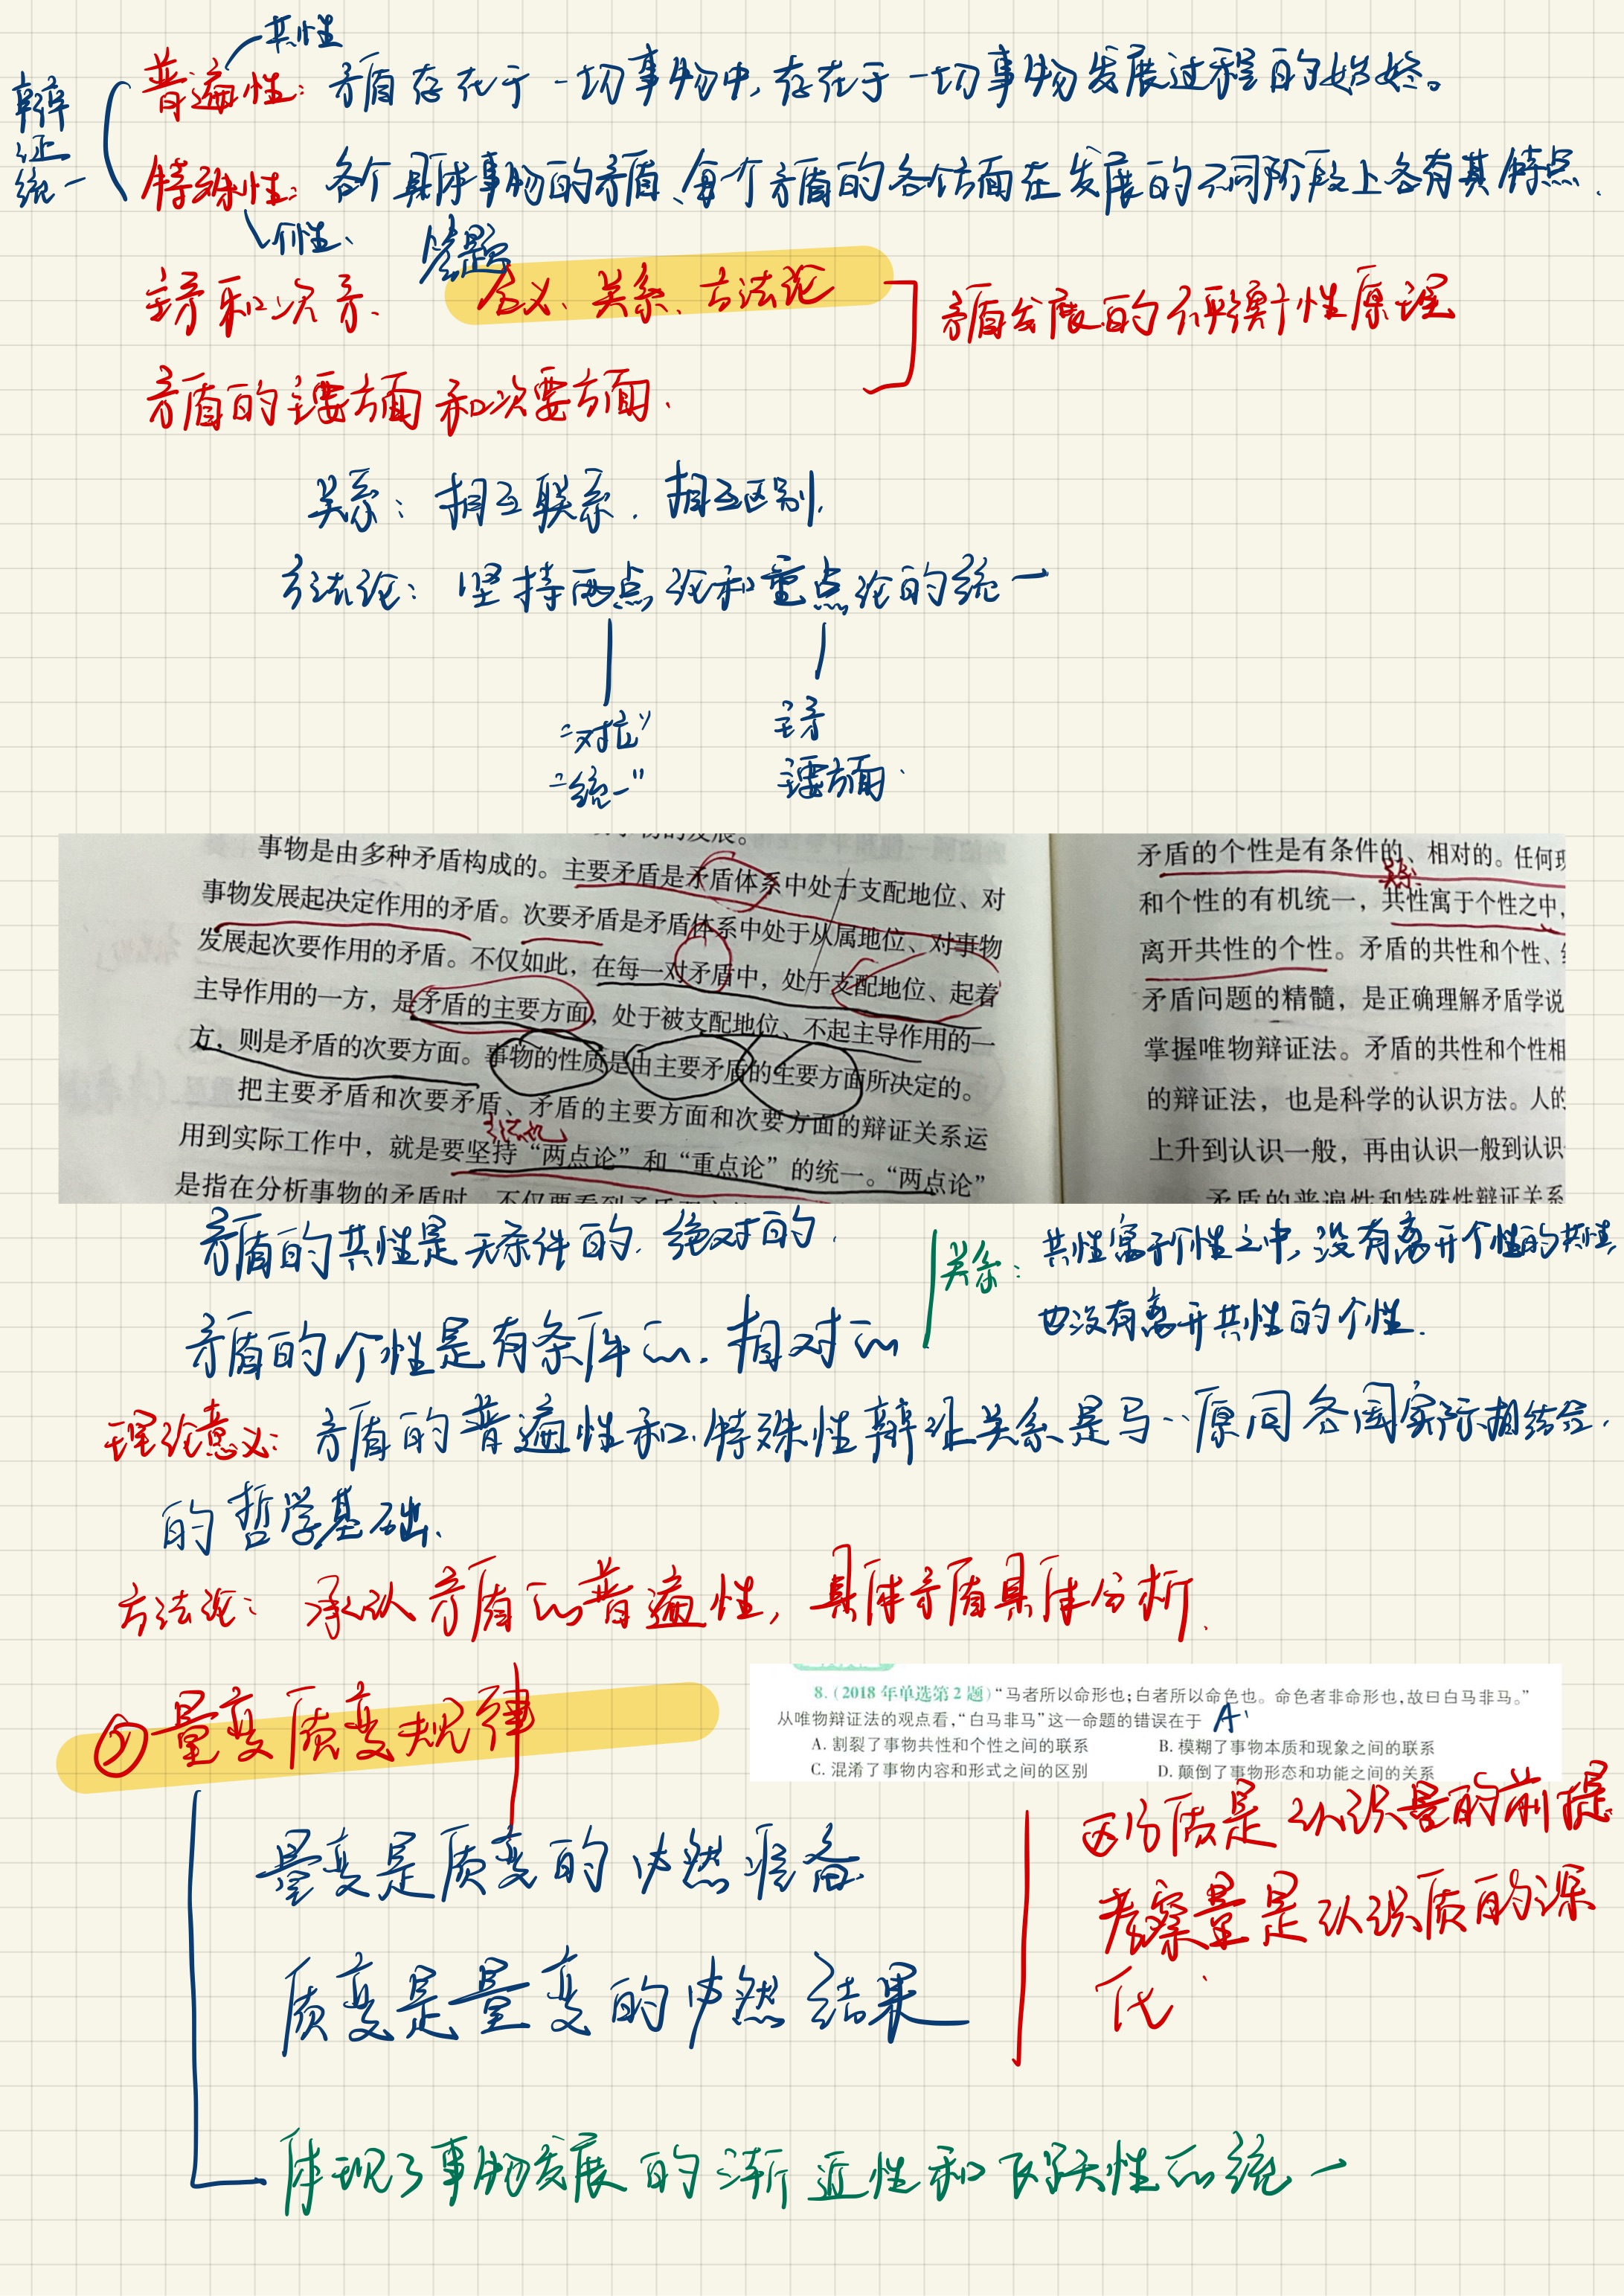 共性
普遍性：矛盾存在于一切事物中，存在于一切事物发展过程的始终。
辩证统一
特殊性：各个具体事物的矛盾、每个矛盾的各个方面在发展的不同阶段上各有其特点.
个性、
答题
主矛和次矛、 含义、关系、方法论
矛盾发展的不平衡性原理
矛盾的主要方面和次要方面.
关系：相互联系.相互区别.
方法论：坚持两点论和重点论的统一
"对立" 主矛
"统一" 主要方面.
事物是由多种矛盾构成的。主要矛盾是矛盾体系中处于支配地位、对
事物发展起决定作用的矛盾。次要矛盾是矛盾体系中处于从属地位、对事物
发展起次要作用的矛盾。不仅如此，在每一对矛盾中，处于支配地位、起着
主导作用的一方，是矛盾的主要方面，处于被支配地位、不起主导作用的一
方，则是矛盾的次要方面。事物的性质是由主要矛盾的主要方面所决定的。
把主要矛盾和次要矛盾、矛盾的主要方面和次要方面的辩证关系运
方法论
用到实际工作中，就是要坚持“两点论”和“重点论”的统一。“两点论”
是指在分析事物的矛盾时，不仅要看到矛盾
矛盾的个性是有条件的、相对的。任何现
关系
和个性的有机统一，共性寓于个性之中，
离开共性的个性。矛盾的共性和个性、
矛盾问题的精髓，是正确理解矛盾学说
掌握唯物辩证法。矛盾的共性和个性相
的辩证法，也是科学的认识方法。人的
上升到认识一般，再由认识一般到认识
矛盾的普遍性和特殊性辩证关系
矛盾的共性是无条件的.绝对的.
矛盾的个性是有条件的.相对的
关系：共性寓于个性之中，没有离开个性的共性，
也没有离开共性的个性.
理论意义：矛盾的普遍性和特殊性辩证关系是马…原同各国实际相结合.
的哲学基础.
方法论：承认矛盾的普遍性，具体矛盾具体分析.
②量变质变规律
8.（2018 年单选第 2 题）“马者所以命形也；白者所以命色也。命色者非命形也，故曰白马非马。”
从唯物辩证法的观点看，“白马非马”这一命题的错误在于 A
A. 割裂了事物共性和个性之间的联系 B. 模糊了事物本质和现象之间的联系
C. 混淆了事物内容和形式之间的区别 D. 颠倒了事物形态和功能之间的关系
量变是质变的必然准备.
质变是量变的必然结果
区分质是认识量的前提
考察量是认识质的深
化.
体现了事物发展的渐近性和飞跃性的统一